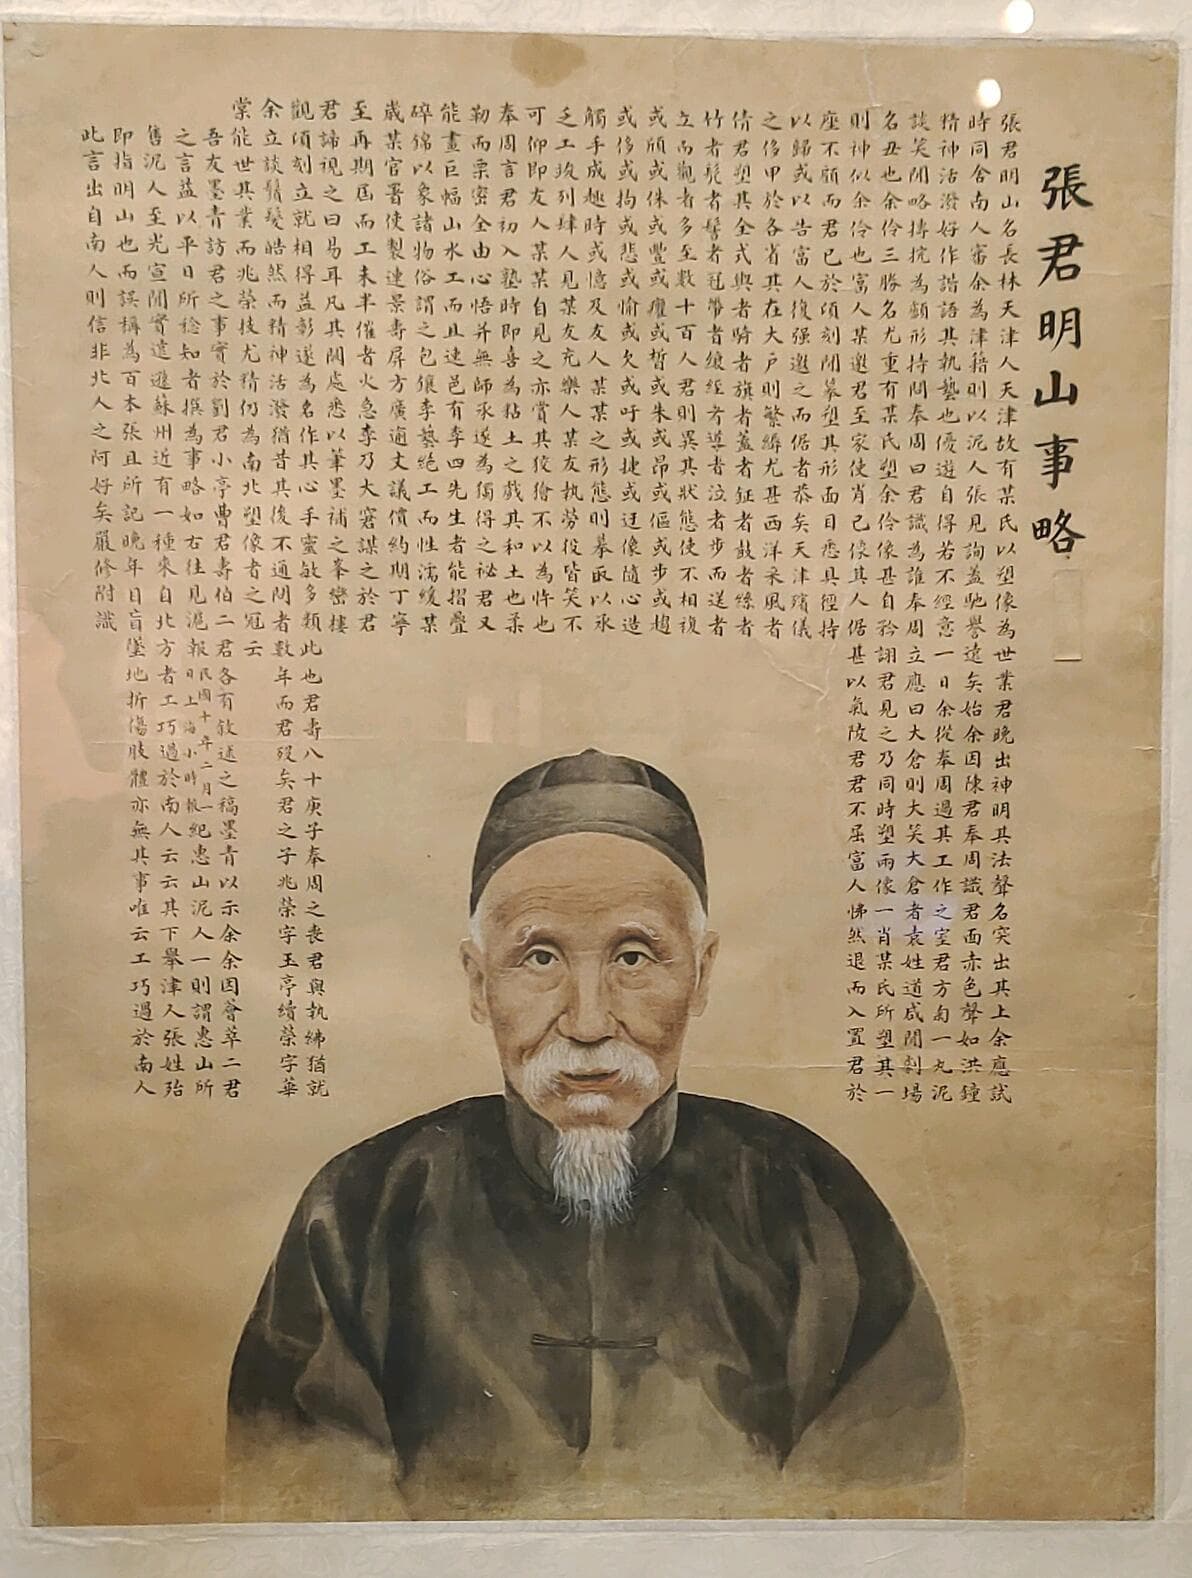 張君明山事略
張君明山名長林天津人天津故有某氏以塑像為世業君晚出神明其法聲名突出其上余應試
時同舍南人審余為津籍則以泥人張見詢蓋馳譽遠矣始余因陳君奉周識君面赤色聲如洪鐘
精神活潑好作諧語其執藝也優遊自得若不經意一日余從奉周過其工作之室君方南一丸泥
談笑間略摶捖為顱形持問奉周曰君識為誰奉周立應曰大倉則大笑大倉者袁姓道咸間劇場
名丑也余伶三勝名尤重有某氏塑余伶像甚自矜詡君見之乃同時塑兩像一肖某氏所塑其一
則神似余伶也富人某邀君至家使肖己像其人倨甚以氣陵君君不屈富人怫然退而入置君於
座不顧而君已於頃刻間摹塑其形面目悉具徑持
以歸或以告富人復强邀之而倨者恭矣天津殯儀
之侈甲於各省其在大戶則繁縟尤甚西洋采風者
倩君塑其全式與者騎者旗者蓋者鉦者鼓者絲者
竹者髡者髻者冠帶者縗絰者導者泣者步而送者
立而觀者多至數十百人君則異其狀態使不相複
或頎或侏或豐或癯或皙或朱或昂或傴或步或趨
或侈或拘或悲或愉或欠或吁或捷或迂像隨心造
觸手成趣時或憶及友人某某之形態則摹取以承
乏工竣列肆人見某友充樂人某友執勞役皆笑不
可仰即友人某某自見之亦賞其狡獪不以為忤也
奉周言君初入塾時即喜為粘土之戲其和土也柔
勒而栗密全由心悟并無師承遂為獨得之祕君又
能畫巨幅山水工而且速邑有李四先生者能摺疊
碎錦以象諸物俗謂之包儴李藝絕工而性濡緩某
歲某官署使製連景壽屏方廣逾丈議價約期丁寧
至再期屆而工未半催者火急李乃大窘謀之於君
君諦視之曰易耳凡其闕處悉以筆墨補之峯巒樓
觀頃刻立就相得益彰遂為名作其心手靈敏多類此也君壽八十庚子奉周之喪君與執紼猶就
余立談鬚髮皓然而精神活潑猶昔其後不通問者數年而君歿矣君之子兆榮字玉亭續榮字華
棠能世其業而兆榮技尤精仍為南北塑像者之冠云
吾友墨青訪君之事實於劉君小亭曹君壽伯二君各有敘述之稿墨青以示余余因薈萃二君
之言益以平日所稔知者撰為事略如右往見滬報民國十年二月一日上海小時報紀惠山泥人一則謂惠山所
售泥人至光宣間實遠遜蘇州近有一種來自北方者工巧過於南人云云其下舉津人張姓殆
即指明山也而誤稱為百本張且所記晚年目盲墜地折傷肢體亦無其事唯云工巧過於南人
此言出自南人則信非北人之阿好矣嚴修附識